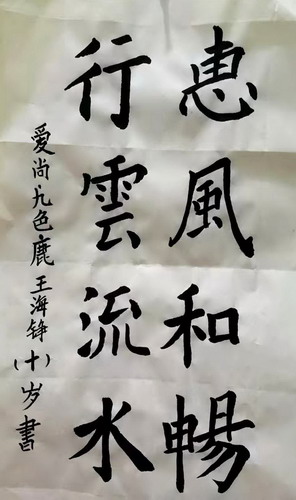 惠風和暢
行雲流水
爱尚九色鹿王海铮（十）岁書